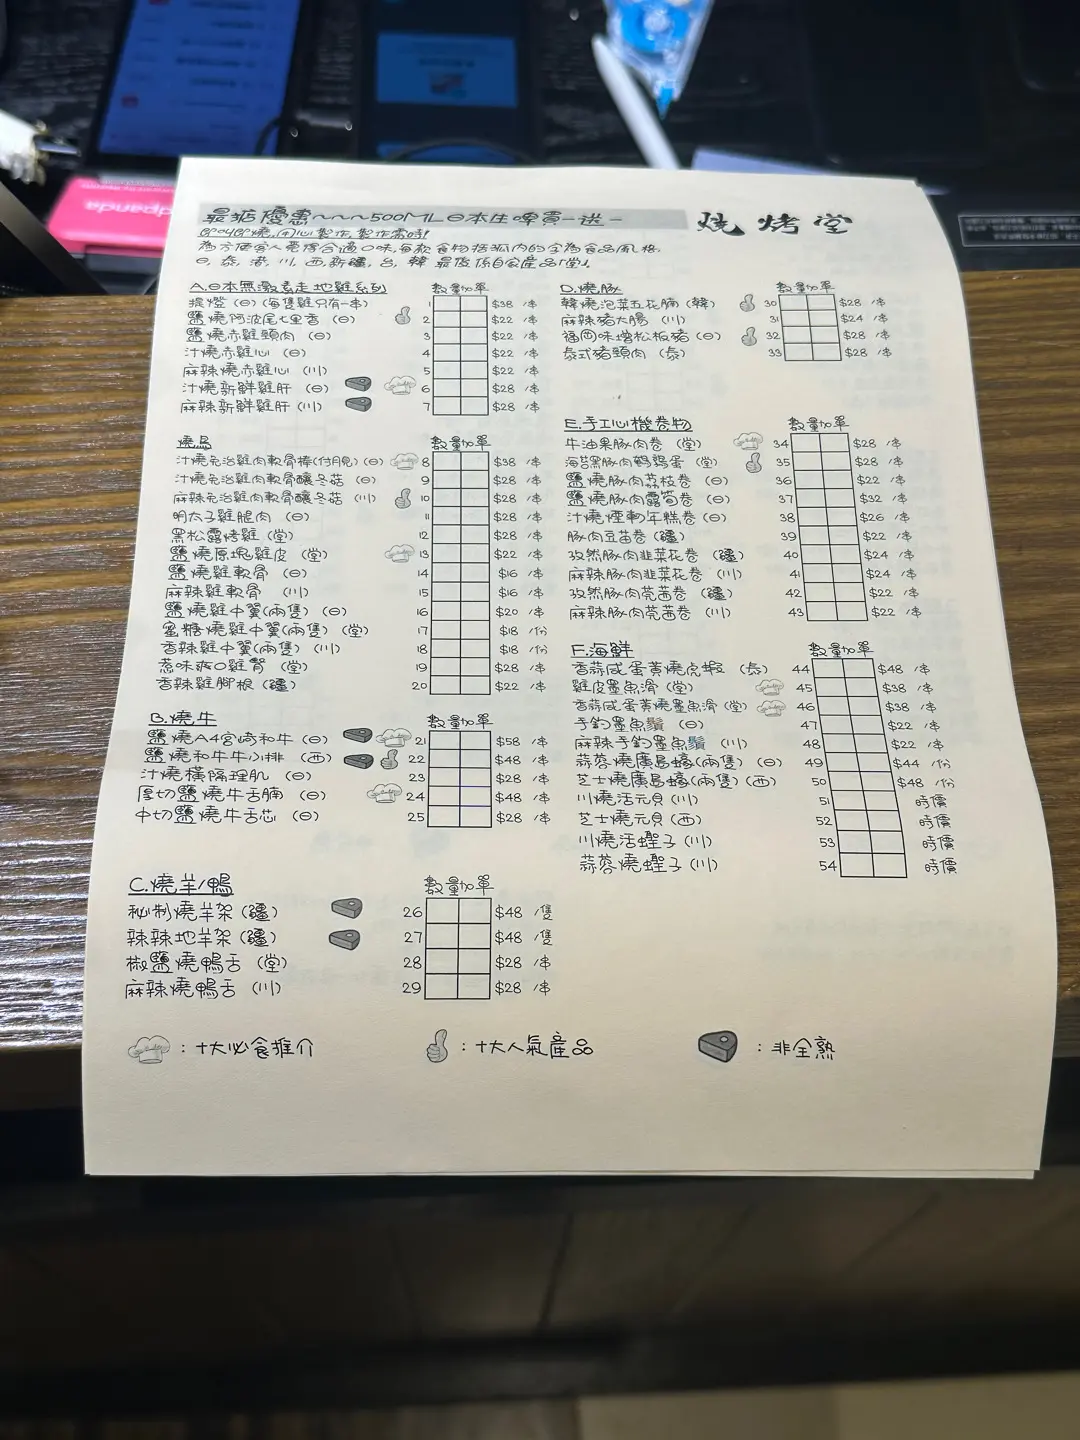 最猜優惠~~~500ML日本生啤買一送一
燒烤堂
即叫即燒,用心製作,製作需時!
為方便客人尋得合適口味,每款食物括弧內的字為食品風格.
日, 泰, 港, 川, 西, 新疆, 台, 韓 最後係自家產品「堂」.
A.日本無激素走地雞系列 數量加單
提燈 (日) (每隻雞只有一串) 1 $38 /串
鹽燒阿波尾七里香 (日) 2 $22 /串
鹽燒赤雞頸肉 (日) 3 $22 /串
汁燒赤雞心 (日) 4 $22 /串
麻辣燒赤雞心 (川) 5 $22 /串
汁燒新鮮雞肝 (日) 6 $28 /串
麻辣新鮮雞肝 (川) 7 $28 /串
燒鳥 數量加單
汁燒免治雞肉軟骨棒(付月見) (日) 8 $38 /串
汁燒免治雞肉軟骨釀冬菇 (日) 9 $28 /串
麻辣免治雞肉軟骨釀冬菇 (川) 10 $28 /串
明太子雞腿肉 (日) 11 $28 /串
黑松露烤雞 (堂) 12 $28 /串
鹽燒原塊雞皮 (堂) 13 $22 /串
鹽燒雞軟骨 (日) 14 $16 /串
麻辣雞軟骨 (川) 15 $16 /串
鹽燒雞中翼(兩隻) (日) 16 $20 /串
蜜糖燒雞中翼(兩隻) (堂) 17 $18 /份
香辣雞中翼(兩隻) (川) 18 $18 /份
惹味爽口雞腎 (堂) 19 $28 /串
香辣雞腳根 (疆) 20 $22 /串
B.燒牛 數量加單
鹽燒A4宮崎和牛 (日) 21 $58 /串
鹽燒和牛牛小排 (西) 22 $48 /串
汁燒橫隔理肌 (日) 23 $28 /串
厚切鹽燒牛舌腩 (日) 24 $48 /串
中切鹽燒牛舌芯 (日) 25 $28 /串
C.燒羊/鴨 數量加單
秘制燒羊架 (疆) 26 $48 /隻
辣辣地羊架 (疆) 27 $48 /隻
椒鹽燒鴨舌 (堂) 28 $28 /串
麻辣燒鴨舌 (川) 29 $28 /串
D.燒豚 數量加單
韓燒泡菜五花腩 (韓) 30 $28 /串
麻辣豬大腸 (川) 31 $24 /串
福岡味增松板豬 (日) 32 $28 /串
泰式豬頸肉 (泰) 33 $28 /串
E.手工心機卷物 數量加單
牛油果豚肉卷 (堂) 34 $28 /串
海苔黑豚肉鵪鶉蛋 (堂) 35 $28 /串
鹽燒豚肉荔枝卷 (日) 36 $22 /串
鹽燒豚肉露筍卷 (日) 37 $32 /串
汁燒煙鴨年糕卷 (日) 38 $26 /串
豚肉豆苗卷 (疆) 39 $22 /串
孜然豚肉韭菜花卷 (疆) 40 $24 /串
麻辣豚肉韭菜花卷 (川) 41 $24 /串
孜然豚肉芫茜卷 (疆) 42 $22 /串
麻辣豚肉芫茜卷 (川) 43 $22 /串
F.海鮮 數量加單
香蒜咸蛋黃燒虎蝦 (泰) 44 $48 /串
雞皮墨魚滑 (堂) 45 $38 /串
香蒜咸蛋黃燒墨魚滑 (堂) 46 $38 /串
手釣墨魚鬚 (日) 47 $22 /串
麻辣手釣墨魚鬚 (川) 48 $22 /串
蒜蓉燒廣島蠔(兩隻) (日) 49 $44 /份
芝士燒廣島蠔(兩隻) (西) 50 $48 /份
川燒活元貝 (川) 51 時價
芝士燒元貝 (西) 52 時價
川燒活蟶子 (川) 53 時價
蒜蓉燒蟶子 (川) 54 時價
：十大必食推介
：十大人氣產品
：非全熟
dpanda